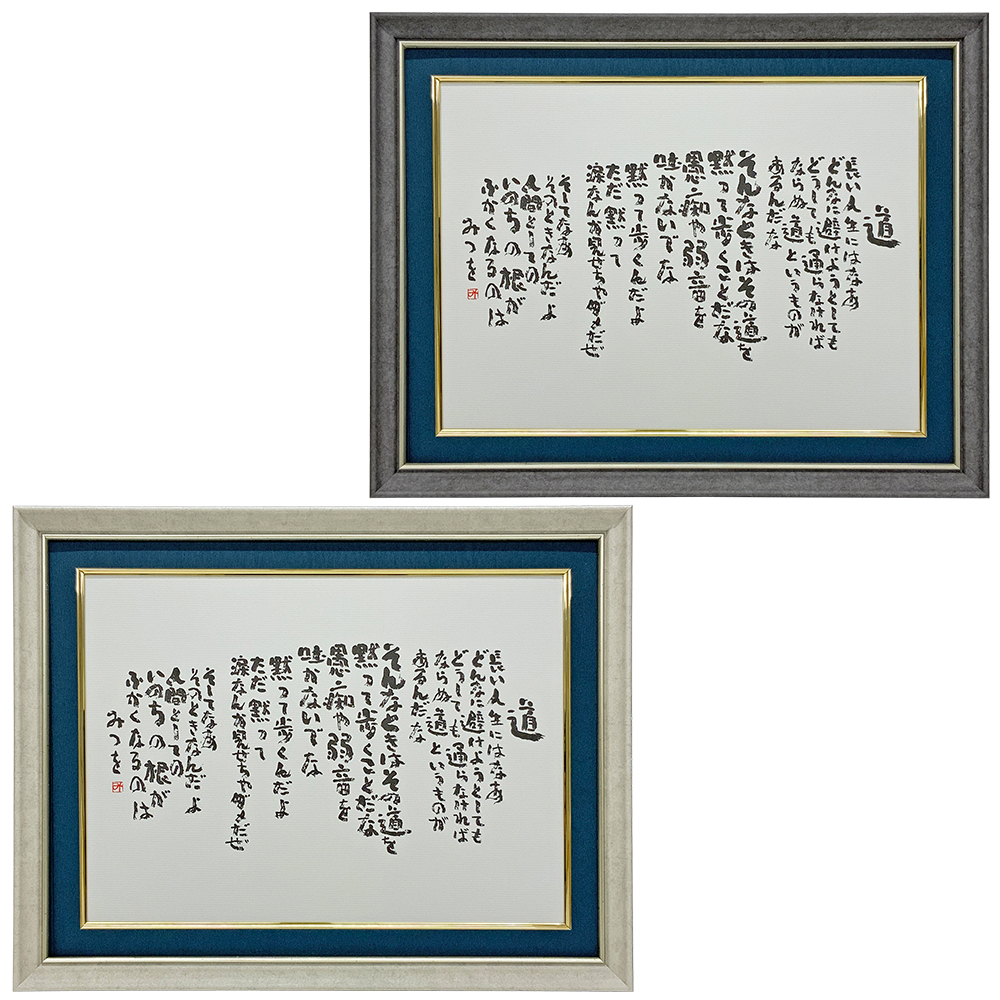 道
長い人生にはなあ
どんなに避けようとしても
どうしても通らなければ
ならぬ道というものが
あるんだな
そんなときはその道を
黙って歩くことだな
愚痴や弱音を
吐かないでな
黙って歩くんだよ
ただ黙って
涙なんか見せちゃダメだぜ
そしてなあ
そのときなんだよ
人間としての
いのちの根が
ふかくなるのは
みつを
道
長い人生にはなあ
どんなに避けようとしても
どうしても通らなければ
ならぬ道というものが
あるんだな
そんなときはその道を
黙って歩くことだな
愚痴や弱音を
吐かないでな
黙って歩くんだよ
ただ黙って
涙なんか見せちゃダメだぜ
そしてなあ
そのときなんだよ
人間としての
いのちの根が
ふかくなるのは
みつを